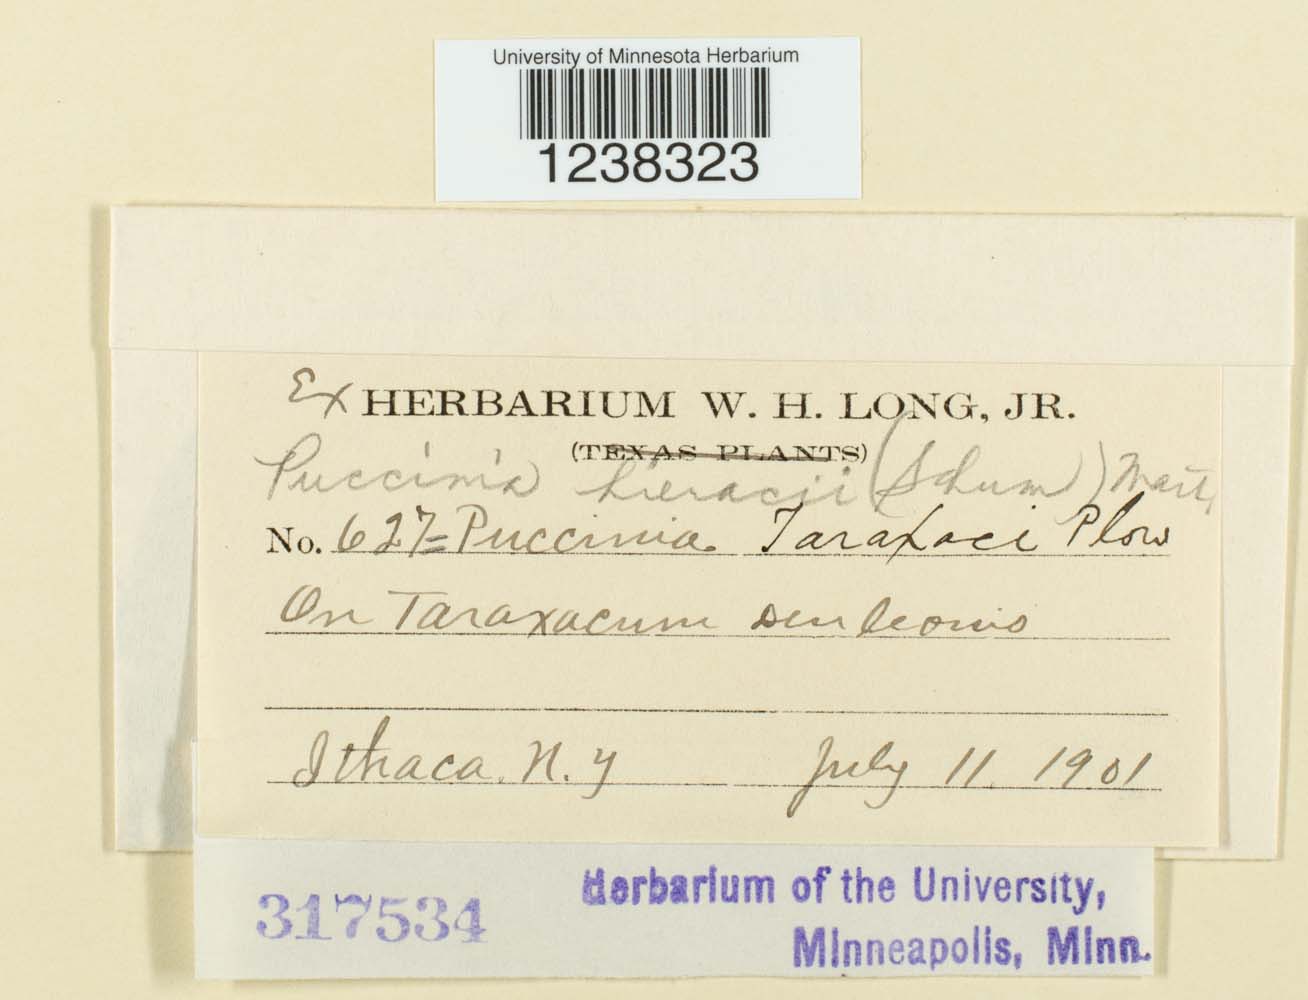 University of Minnesota Herbarium
1238323
Ex HERBARIUM W. H. LONG, JR.
(TEXAS PLANTS)
Puccinia hieracii (Schum) Mart.
No. 627= Puccinia Taraxaci Plow
On Taraxacum densleonis
Ithaca, N. Y July 11. 1901
317534
Herbarium of the University,
Minneapolis, Minn.